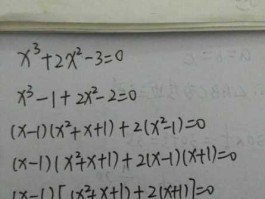 x³+2x²-3=0
x³-1+2x²-2=0
(x-1)(x²+x+1)+2(x²-1)=0
(x-1)(x²+x+1)+2(x-1)(x+1)=0
(x-1)[(x²+x+1)+2(x+1)]=0